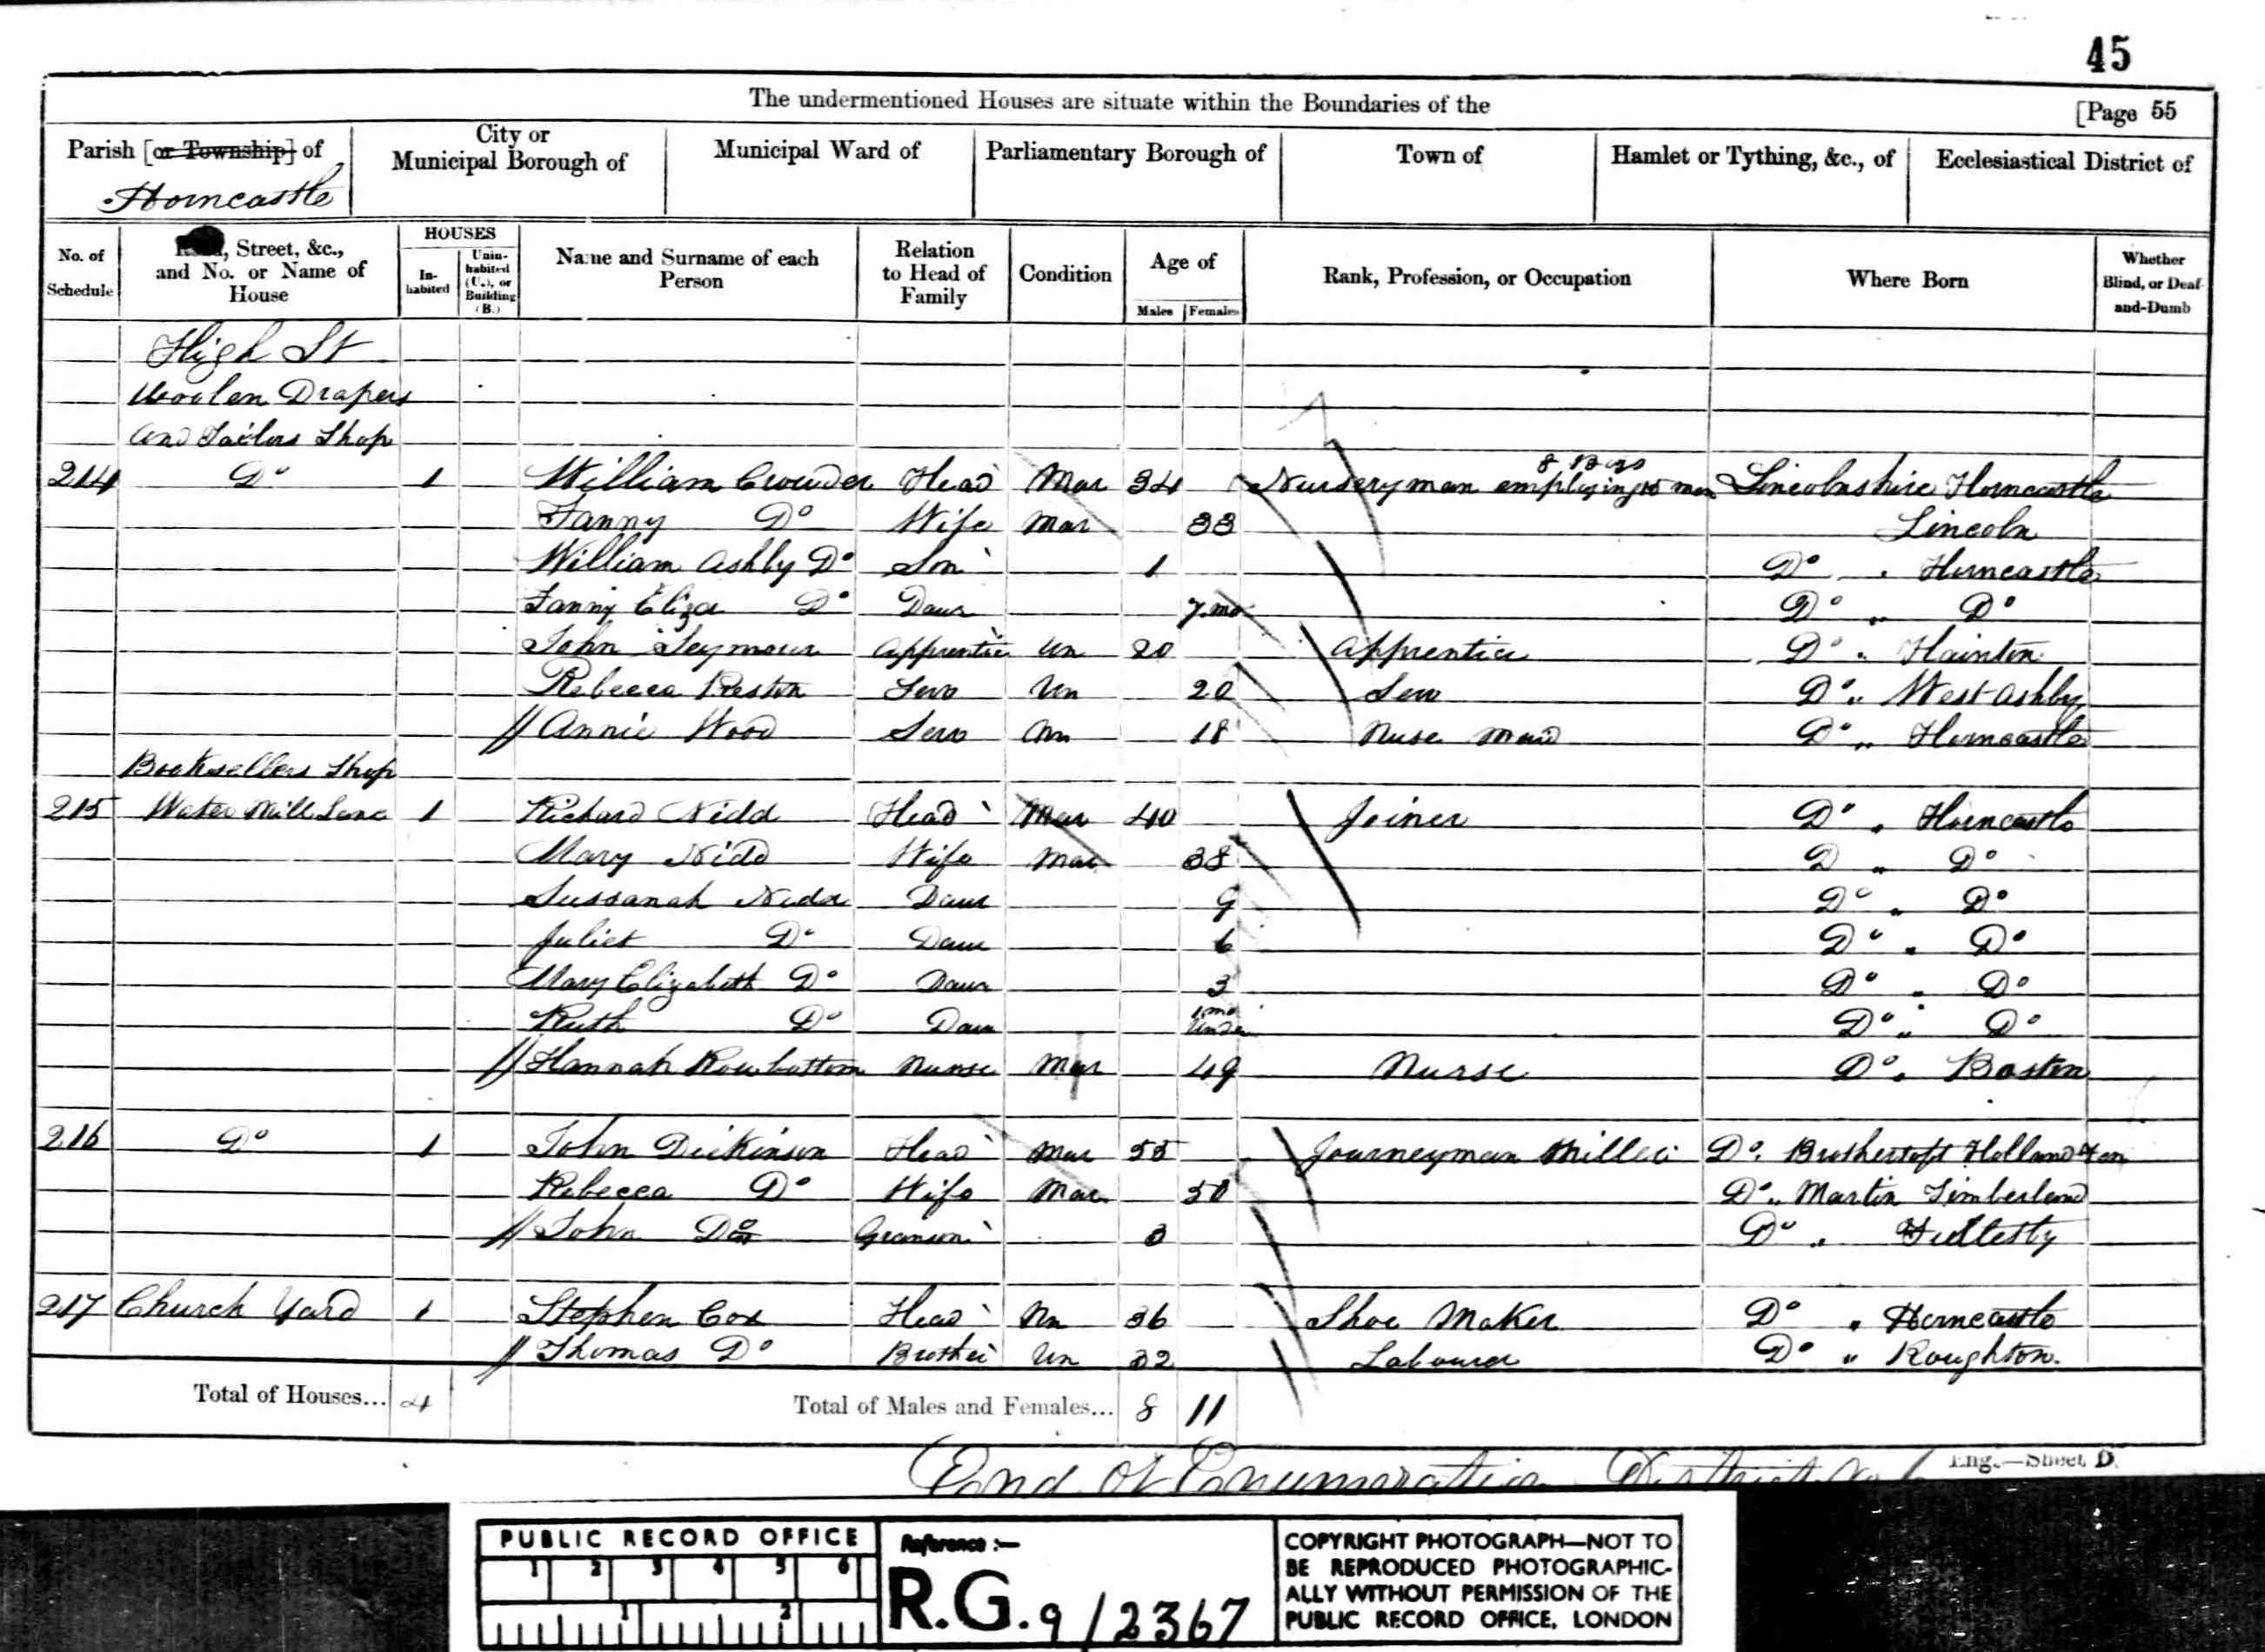 45
The undermentioned Houses are situate within the Boundaries of the [Page 55
Parish [or Township] of Horncastle
City or Municipal Borough of
Municipal Ward of
Parliamentary Borough of
Town of
Hamlet or Tything, &c., of
Ecclesiastical District of
No. of Schedule
Street, &c., and No. or Name of House
HOUSES
In-habited
Unin-habited (U.), or Building (B.)
Name and Surname of each Person
Relation to Head of Family
Condition
Age of
Males Females
Rank, Profession, or Occupation
Where Born
Whether Blind, or Deaf-and-Dumb
High St
Woolen Drapers
and Tailors Shop
8 Boys
214 Do 1 William Crowder Head Mar 34 Nurseryman employing men Lincolnshire Horncastle
Fanny Do Wife Mar 33 Lincoln
William Ashby Do Son 1 Do " Horncastle
Fanny Eliza Do Daur 7 mo Do " Do
John Seymour Apprentice Un 20 Apprentice Do " Hainton
Rebecca Preston Serv Un 20 Serv Do " West Ashby
// Annie Wood Serv Un 18 Nuse Maid Do " Horncastle
Booksellers Shop
215 Water Mill Lane 1 Richard Nidd Head Mar 40 Joiner Do " Horncastle
Mary Nidd Wife Mar 38 D " Do
Sussanah Nidd Daur 9 Do " Do
Juliet Do Daur 6 Do " Do
Mary Elizabeth Do Daur 3 Do " Do
Ruth Do Daur 1 mo Under Do " Do
// Hannah Rowbottom Nurse Mar 49 Nurse Do " Boston
216 Do 1 John Dickinson Head Mar 55 Journeyman Miller Do " Brothertoft Holland Fen
Rebecca Do Wife Mar 50 Do " Martin Timberland
// John Do Granson 3 Do " Fulletby
217 Church Yard 1 Stephen Cox Head Un 36 Shoe Maker Do " Horncastle
// Thomas Do Brother Un 32 Labourer Do " Roughton.
Total of Houses... 4 Total of Males and Females... 8 11
Eng.—Sheet D.
End of Enumeration District No
PUBLIC RECORD OFFICE
1 2 3 4 5 6
1 2
Reference :—
R.G. 9/2367
COPYRIGHT PHOTOGRAPH—NOT TO
BE REPRODUCED PHOTOGRAPHIC-
ALLY WITHOUT PERMISSION OF THE
PUBLIC RECORD OFFICE, LONDON